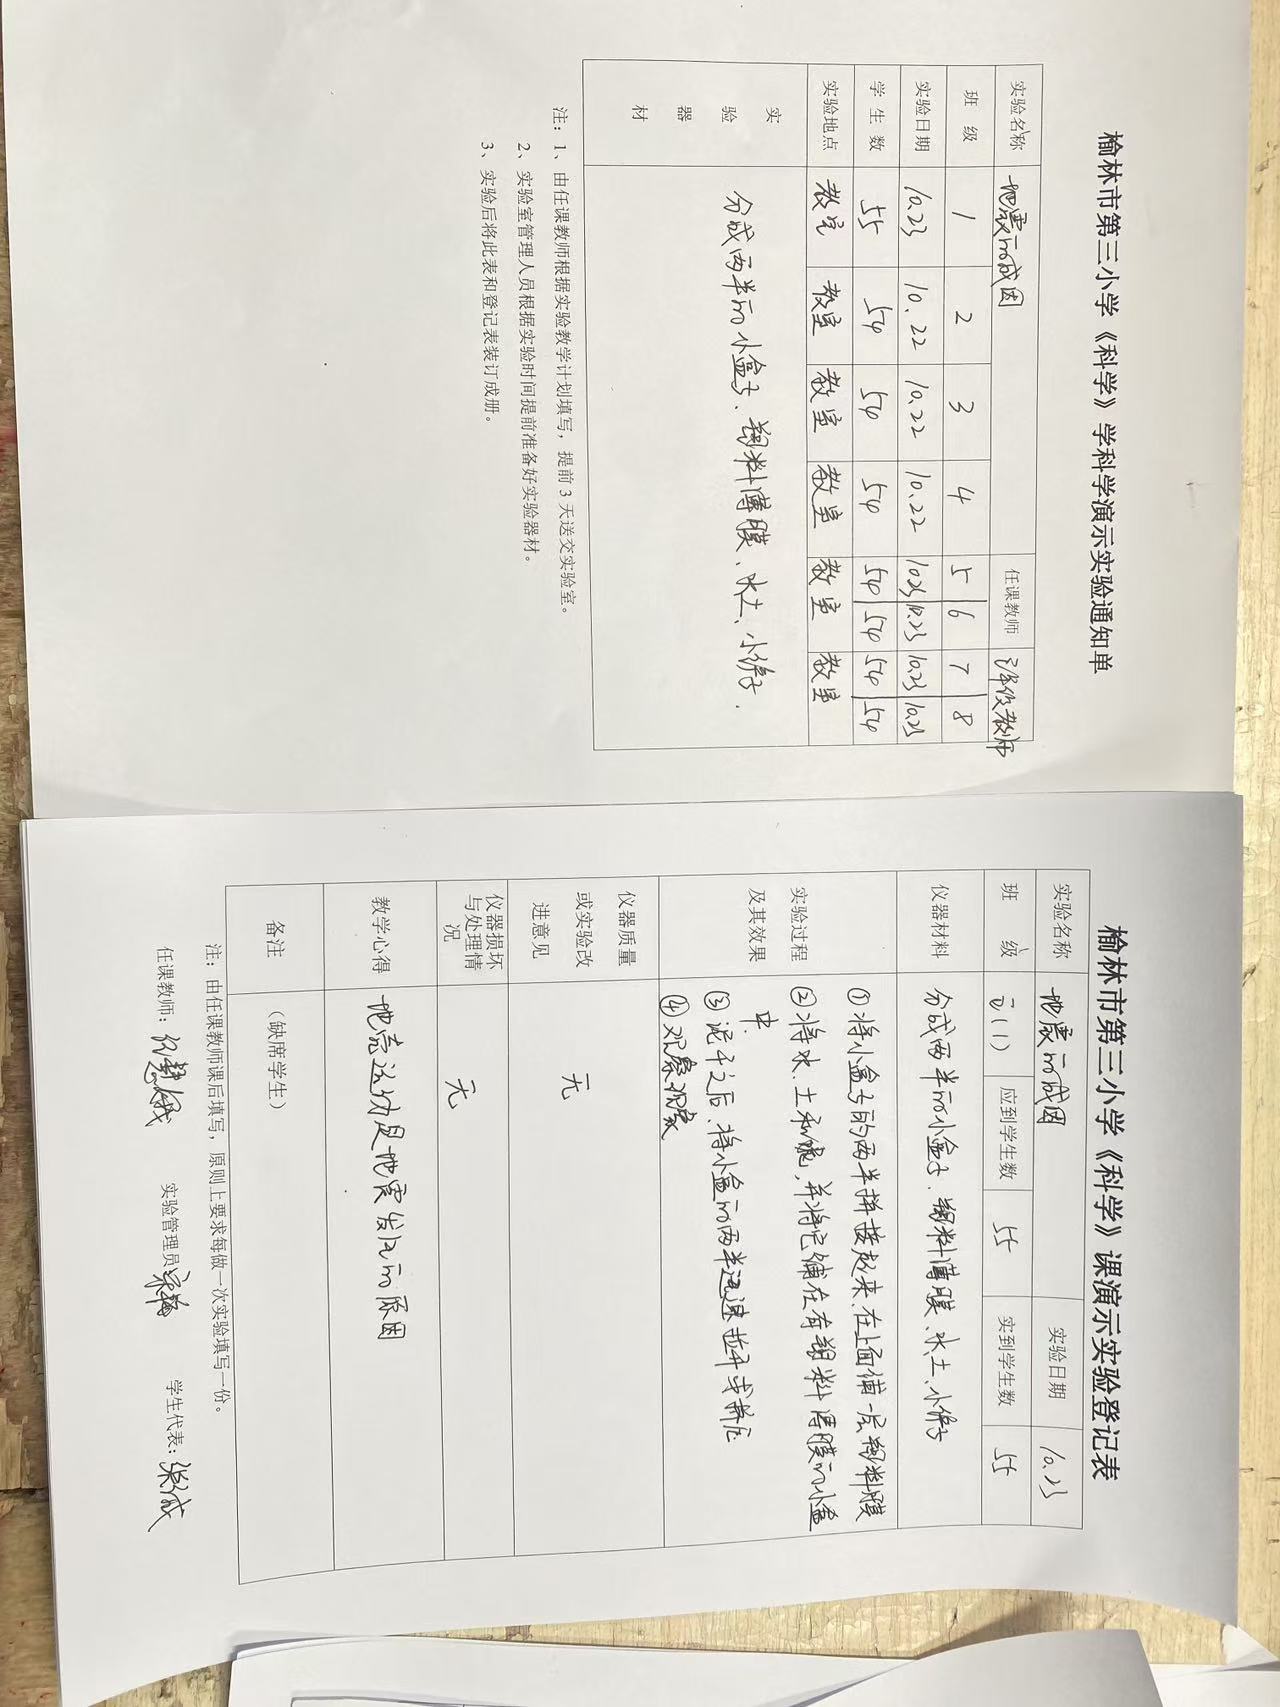 榆林市第三小学《科学》学科学演示实验通知单
实验名称 地震的成因 任课教师 教师
班 级 1 2 3 4 5 6 7 8
实验日期 10.23 10.22 10.22 10.22 10.23 10.23 10.23 10.23
学 生 数 55 54 54 54 54 54 54 54
实验地点 教室 教室 教室 教室 教室 教室
实 验 器 材 分成两半的小盒子、塑料薄膜、水土、小铲子.
注：1、由任课教师根据实验教学计划填写，提前3天送交实验室。
2、实验室管理人员根据实验时间提前准备好实验器材。
3、实验后将此表和登记表装订成册。
榆林市第三小学《科学》课演示实验登记表
实验名称 地震的成因 实验日期 10.23
班 级 (1) 应到学生数 55 实到学生数 55
仪器材料 分成两半的小盒子、塑料薄膜、水、土、小铲子
实验过程
及其效果
①将小盒子的两半拼接起来,在上面铺一层塑料膜
②将水、土和成泥,并将它铺在有塑料薄膜的小盒
中.
③泥干之后,将小盒的两半迅速拉开或挤压
④观察现象
仪器质量
或实验改
进意见
无
仪器损坏
与处理情
况
无
教学心得 地壳运动是地震发生的原因
备注 （缺席学生）
注：由任课教师课后填写，原则上要求每做一次实验填写一份。
任课教师： 实验管理员 学生代表：